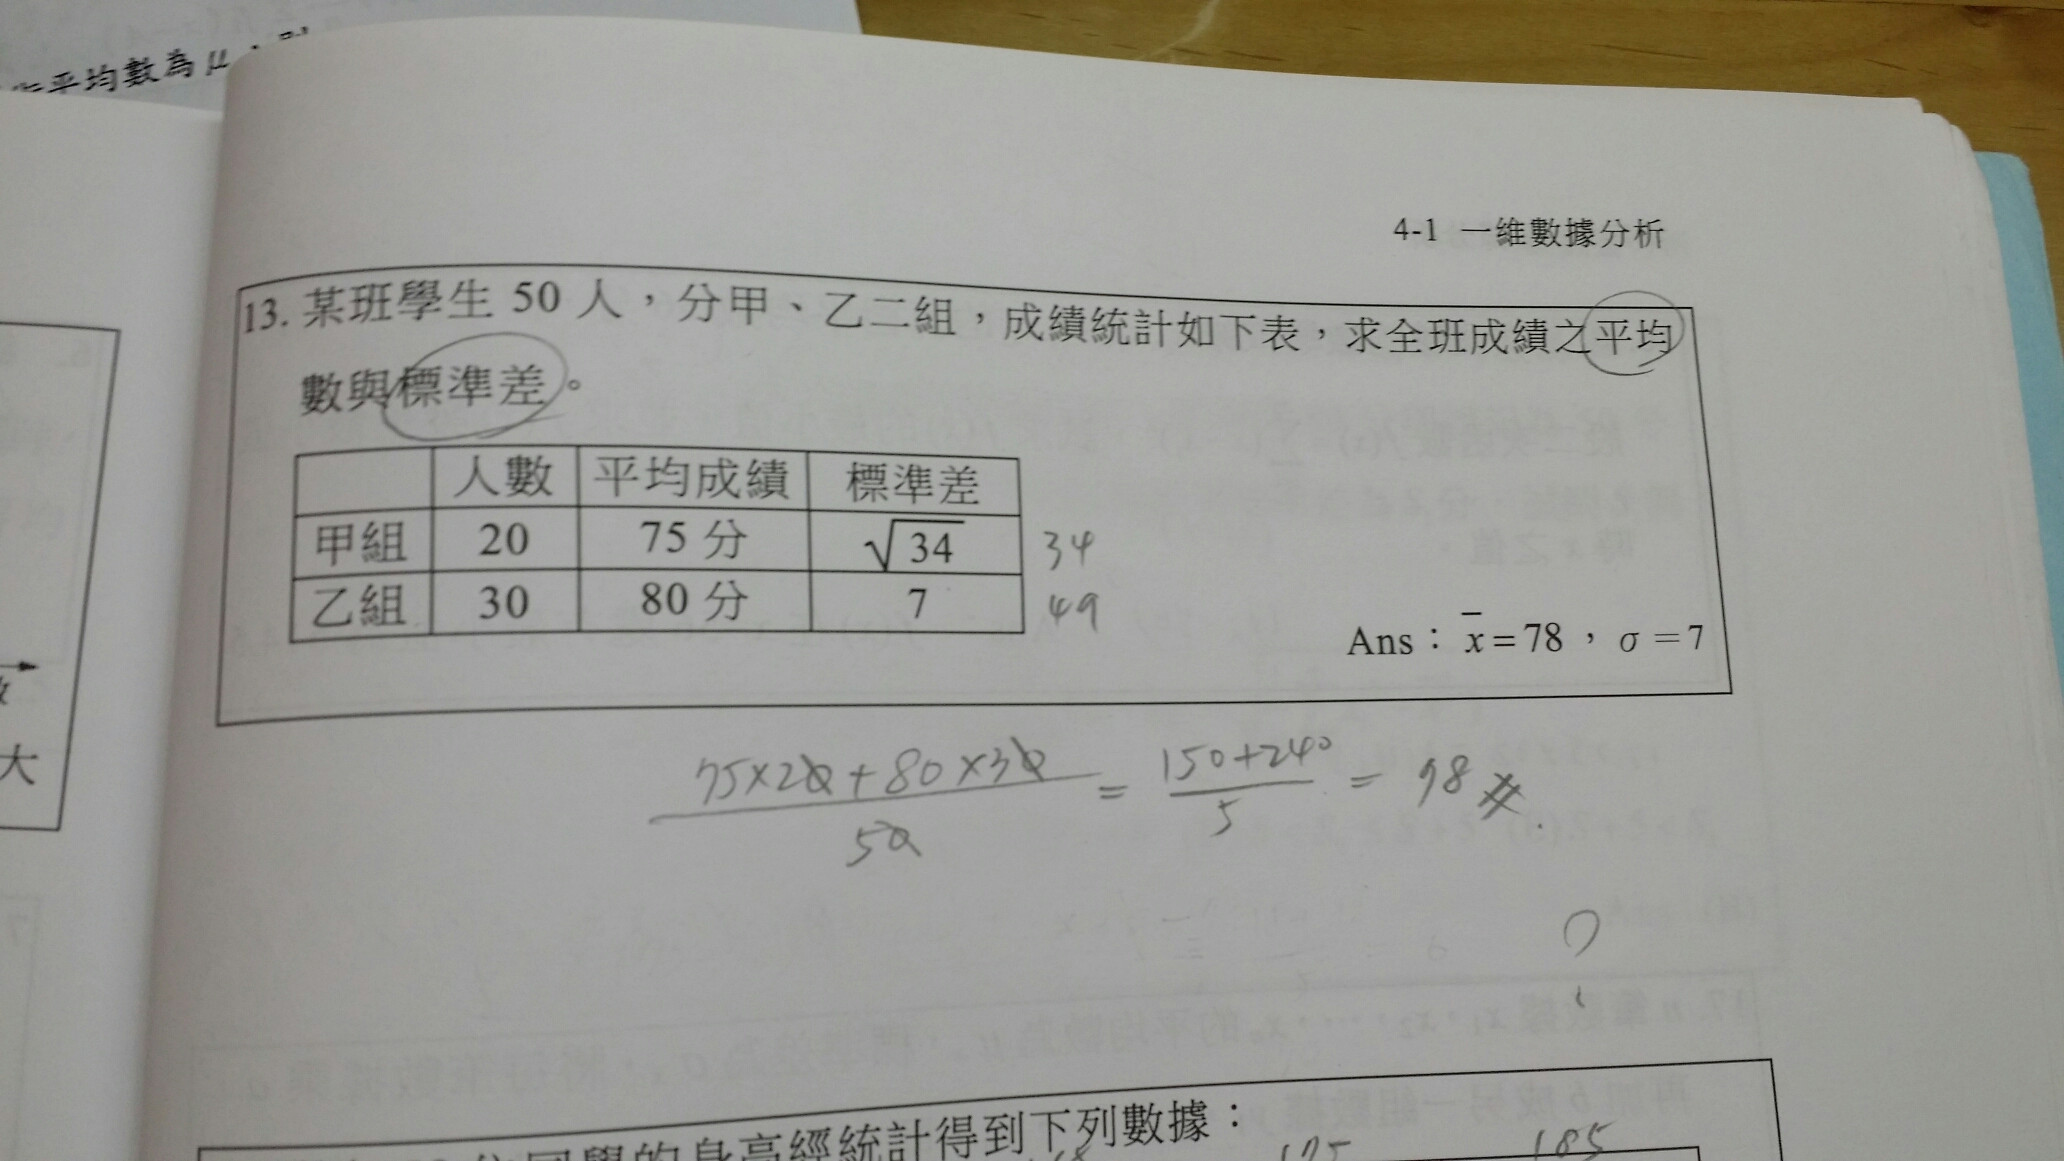 平均數為 μ
4-1 一維數據分析
13. 某班學生 50 人，分甲、乙二組，成績統計如下表，求全班成績之平均
數與標準差。
人數 平均成績 標準差
甲組 20 75 分 √34 34
乙組 30 80 分 7 49
Ans： x̄ = 78 ， σ = 7
大
75×20+80×30 / 50 = 150+240 / 5 = 78 #.
?
同學的身高經統計得到下列數據：
175 185